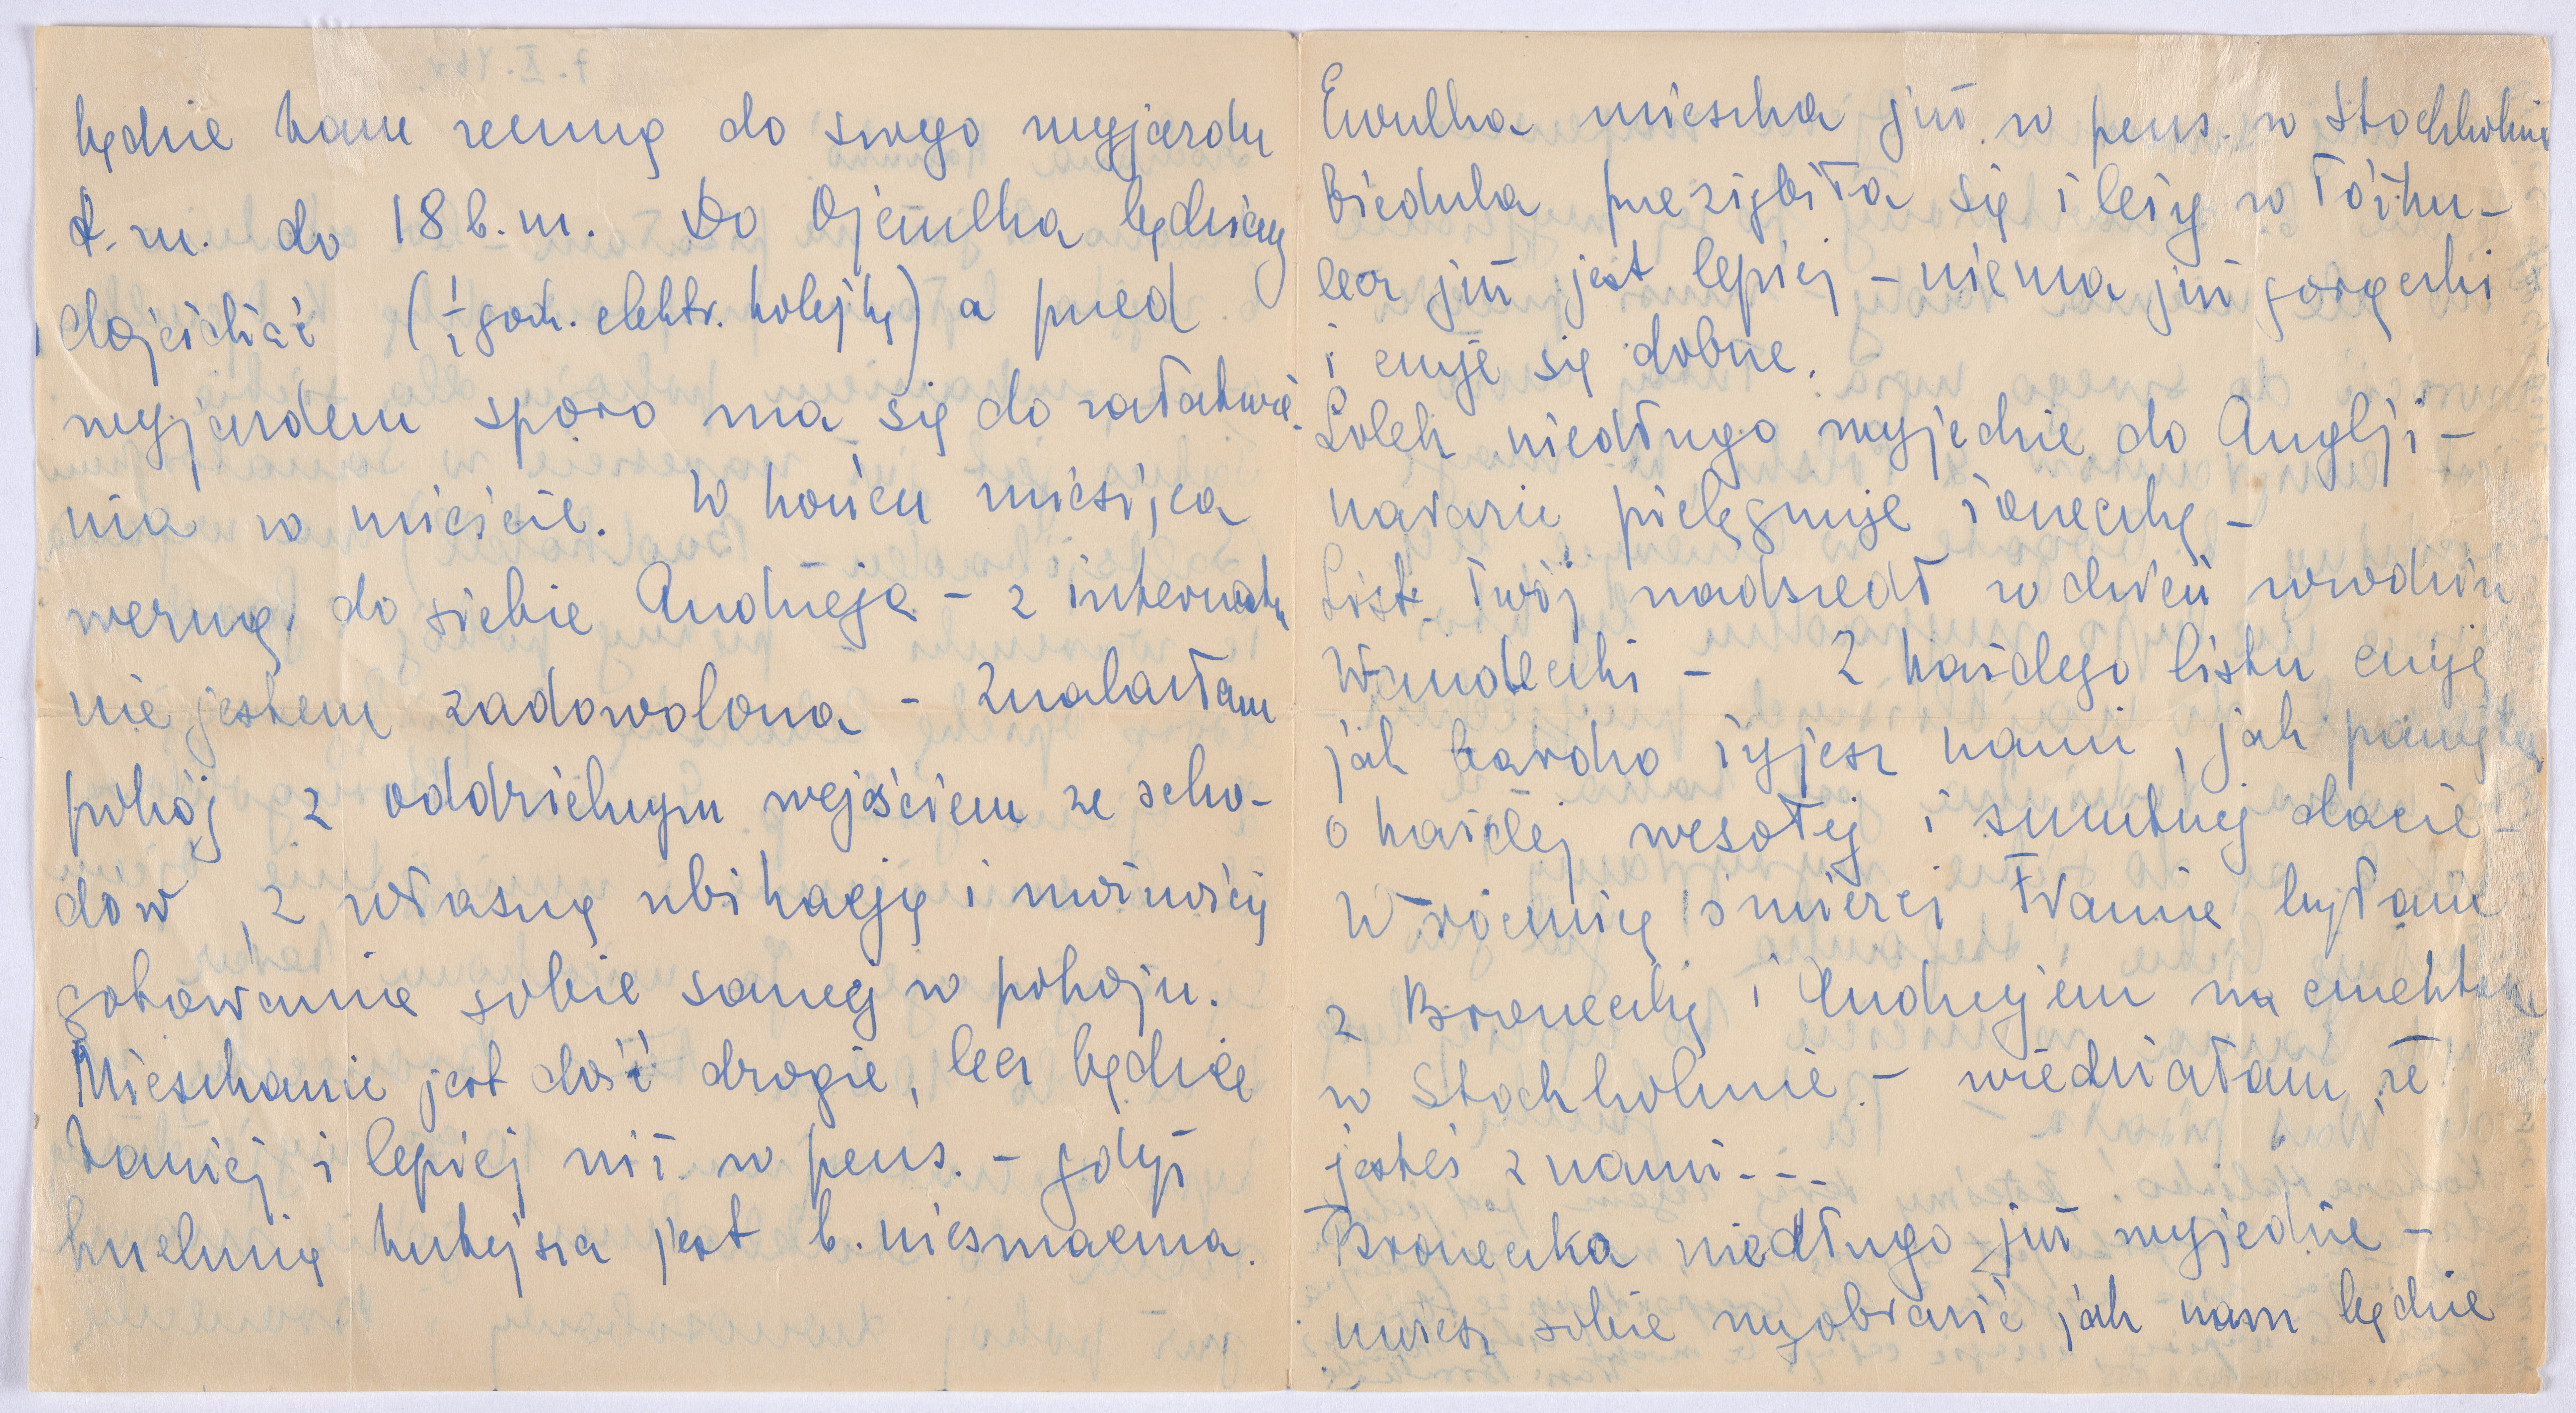 będzie tam ze mną do swego wyjazdu
t. zn. do 18 b. m. Do Ojczulka będziemy
dojeżdżać (½ godz. elektr. kolejką) a przed
wyjazdem sporo ma się do załatwie-
nia w mieście. W końcu miesiąca
wezmę do siebie Andrzeja – z internatu
nie jestem zadowolona – Znalazłam
pokój z oddzielnym wejściem ze scho-
dów, z własną ubikacją i możnością
gotowania sobie samej w pokoju.
Mieszkanie jest dość drogie, lecz będzie
taniej i lepiej niż w pens. – gdyż
kuchnia tutejsza jest b. niesmaczna.
Ewulka mieszka już w pens. w Stockholmie
Biedula przeziębiła się i leży w łóżku –
lecz już jest lepiej – niema już gorączki
i czuje się dobrze.
Lolek niedługo wyjedzie do Anglji –
narazie pielęgnuje żoneczkę –
List Twój nadszedł w dzień urodzin
Wandeczki – Z każdego listu czuję
jak bardzo żyjesz nami, jak pamiętasz
o każdej wesołej i smutnej dacie –
W rocznicę śmierci Frania byłam
z Broneczką i Andrzejem na cmentarzu
w Stockholmie – wiedziałam, że
jesteś z nami - - -
Broneczka niedługo już wyjedzie –
umiesz sobie wyobrazić jak nam będzie